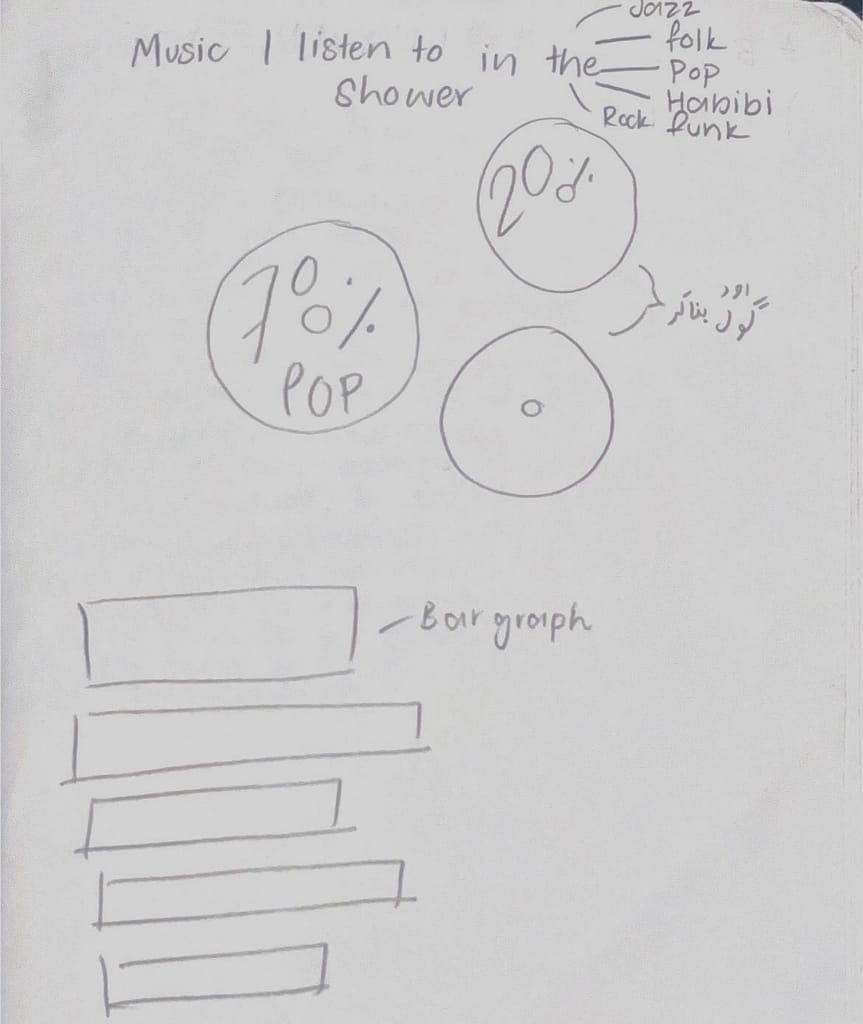 Music I listen to in the
Shower
Jazz
folk
Pop
Habibi
funk
Rock
20%
70%
POP
اور
گول بناکر
Bar graph